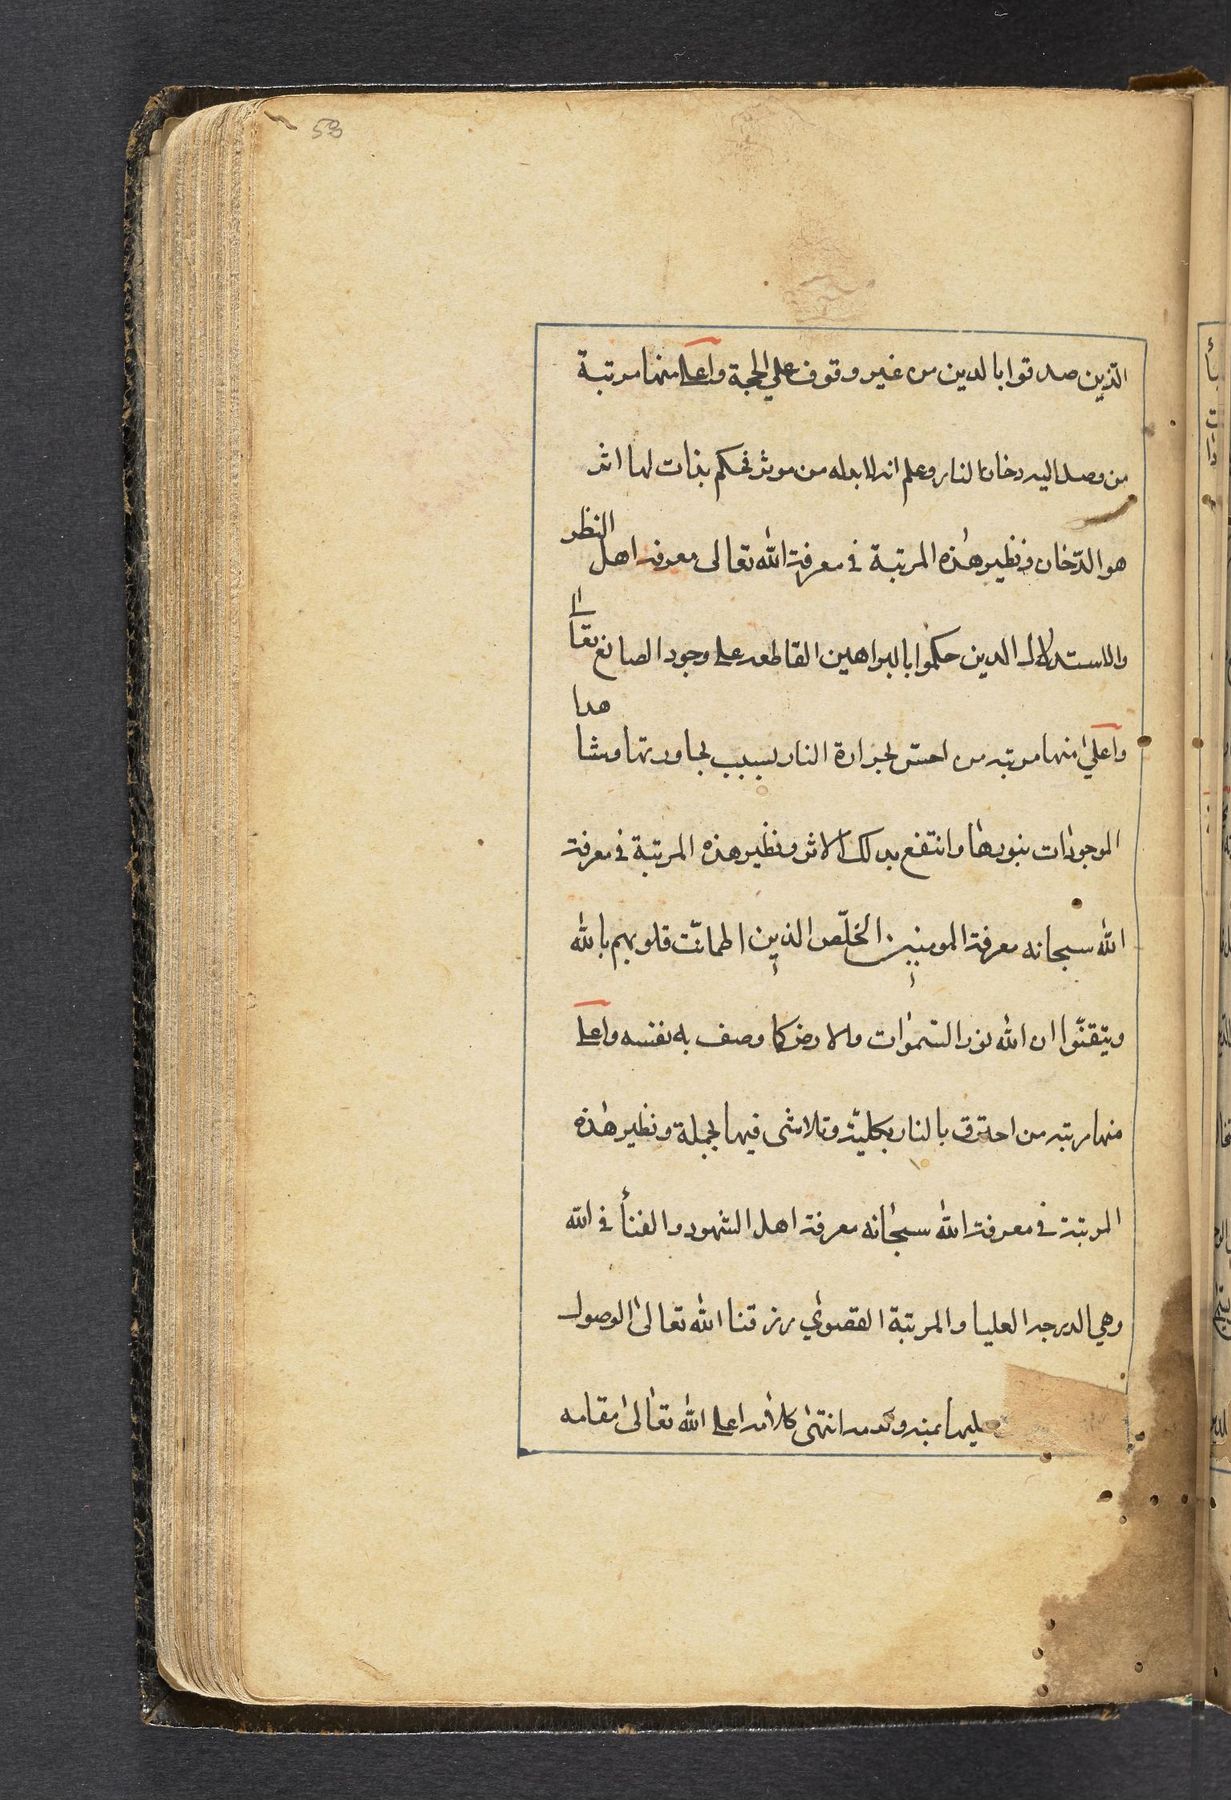 53
الذين صدقوا بالدين من غير وقوف علي الحجة واعلى منها مرتبة
من وصل اليه دخان النار وعلم انه لا بد له من موثر فحكم بذات لها اثر
هو الدّخان ونظير هٰذه المرتبة في معرفة اللّٰه تعالى معرفة اهل النظر
والاستدلال الذين حكموا بالبراهين القاطعه على وجود الصانع تعالى
واعلىٰ منها مرتبه من احسّ بحرارة النار بسبب مجاورتها وشاهد
الموجودات بنورها وانتفع بذلك الاثر ونظير هذه المرتبة في معرفة
اللّٰه سبحانه معرفة المومنين الخلّص الذين اطمانّت قلوبهم باللّٰه
وتيقنّوا ان اللّٰه نور السّمٰوات والارض كما وصف به نفسه واعلى
منها مرتبه من احترق بالنار بكليّته وتلاشى فيها بجملة ونظير هٰذه
المرتبة في معرفة اللّٰه سبحٰانه معرفة اهل الشهود والفنأ في اللّٰه
وهي الدرجه العليا والمرتبة القصوٰي رزقنا اللّٰه تعالىٰ الوصول
ليها بمنه وكرمه انتهىٰ كلامه اعلى اللّٰه تعٰالىٰ مقامه